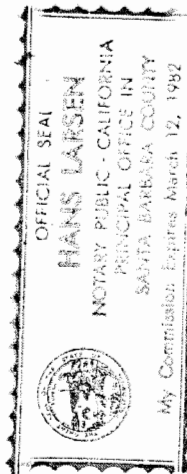 OFFICIAL SEAL
HANS LARSEN
NOTARY PUBLIC - CALIFORNIA
PRINCIPAL OFFICE IN
SANTA BARBARA COUNTY
My Commission Expires March 12, 1982